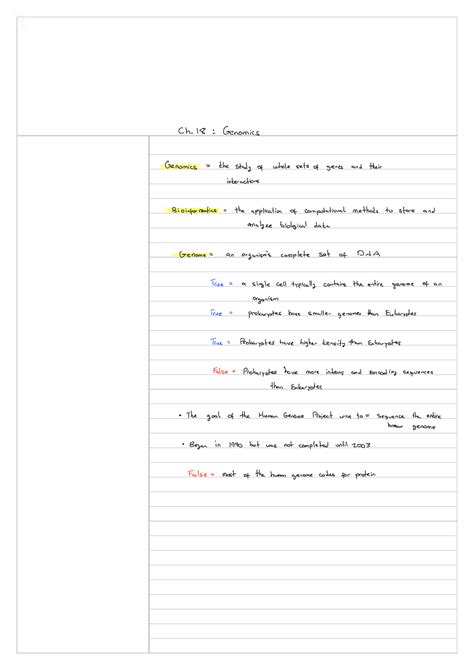 Ch. 18 : Genomics
Genomics = the study of whole sets of genes and their
interactions
Bioinformatics = the application of computational methods to store and
analyze biological data
Genome = an organism's complete set of DNA
True = a single cell typically contains the entire genome of an
organism
True = prokaryotes have smaller genomes than Eukaryotes
True = Prokaryotes have higher density than Eukaryotes
False = Prokaryotes have more introns and noncoding sequences
than Eukaryotes
• The goal of the Human Genome Project was to = sequence the entire
human genome
• Began in 1990 but was not completed until 2003
False = most of the human genome codes for protein